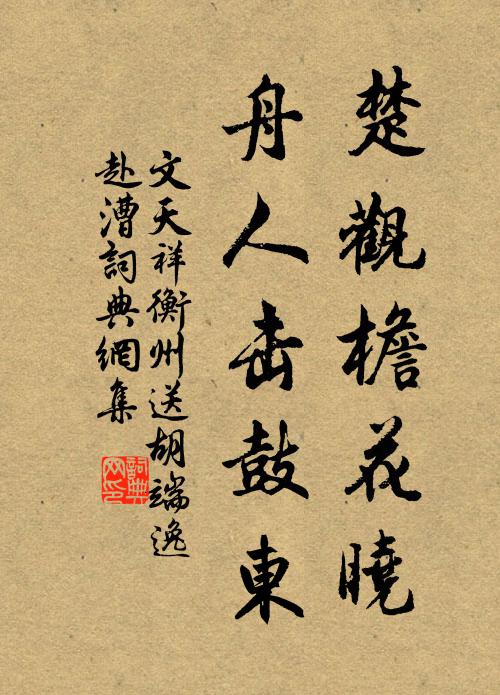 楚觀檐花曉
舟人击鼓東
文天祥衡州送胡端逸
赴漕詞典網集
詞典
网印